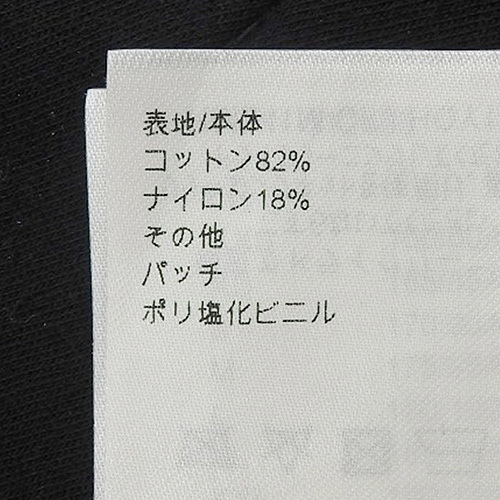 表地/本体
コットン82%
ナイロン18%
その他
パッチ
ポリ塩化ビニル